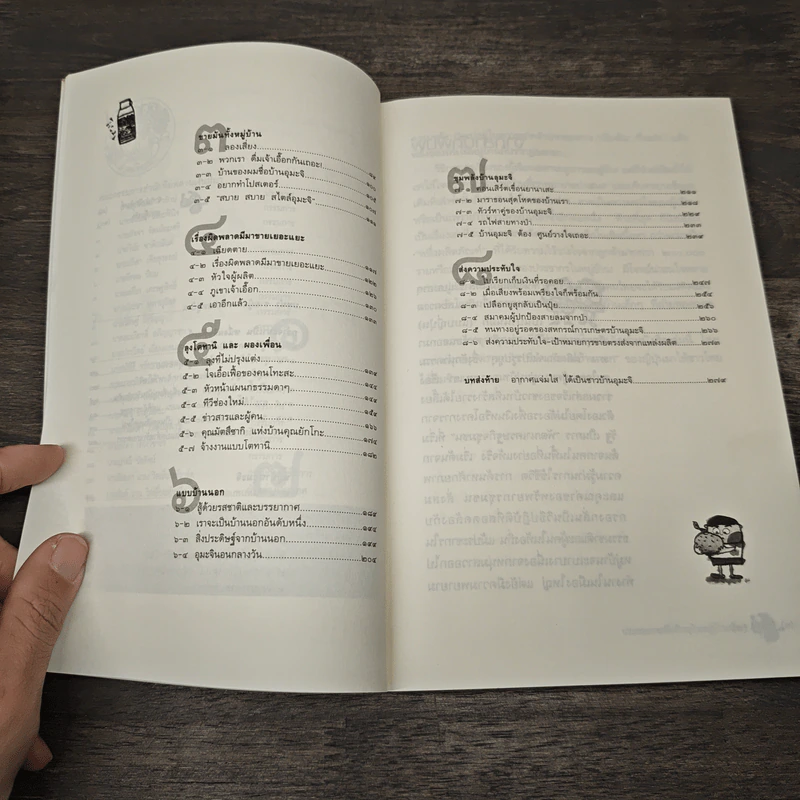 ๓
ขายมันทั้งหมู่บ้าน
ลองเสียง
๓-๒ พวกเรา ดื่มเจ้าเอื้อกกันเถอะ!
๓-๓ บ้านของผมชื่อบ้านอุมะจิ
๓-๔ อยากทำโปสเตอร์
๓-๕ "สบาย สบาย สไตล์อุมะจิ"
๔
เรื่องผิดพลาดมีมาขายเยอะแยะ
เฉียดตาย ๑๑๗
๔-๒ เรื่องผิดพลาดมีมาขายเยอะแยะ ๑๒๒
๔-๓ หัวใจผู้ผลิต ๑๒๖
๔-๔ ภูเขาเจ้าเอื้อก
๔-๕ เอาอีกแล้ว ๑๓๓
๕
ลุงโตทานิ และ ผองเพื่อน
๕-๑ ลุงที่ไม่ปรุงแต่ง ๑๓๙
๕-๒ ใจเอื้อเฟื้อของคนโทะสะ ๑๔๔
๕-๓ หัวหน้าแผนกธรรมดาๆ
๕-๔ ทีวีช่องใหม่ ๑๕๙
๕-๕ ข่าวสารและผู้คน ๑๖๖
๕-๖ คุณมัตสึซากิ แห่งบ้านคุณยักโกะ ๑๗๔
๕-๗ จ้างงานแบบโตทานิ ๑๘๒
๖
แบบบ้านนอก
สู้ด้วยรสชาติและบรรยากาศ ๑๘๙
๖-๒ เราจะเป็นบ้านนอกอันดับหนึ่ง ๑๙๔
๖-๓ สิ่งประดิษฐ์จากบ้านนอก ๑๙๙
๖-๔ อุมะจินอนกลางวัน ๒๐๔
๗
ชุมพลังบ้านอุมะจิ
คอนเสิร์ตเขื่อนยานาเสะ ๒๑๑
๗-๒ มาราธอนสุดโหดของบ้านเรา ๒๑๘
๗-๓ ทัวร์หาคู่ของบ้านอุมะจิ ๒๒๗
๗-๔ รถไฟสายทางป่า ๒๓๓
๗-๕ บ้านอุมะจิ ต้อง ศูนย์วางใจเถอะ ๒๓๙
๘
ส่งความประทับใจ
ใบเรียกเก็บเงินที่รอคอย ๒๔๗
๘-๒ เมื่อเสียงพร้อมเพรียงใจก็พร้อมกัน ๒๕๔
๘-๓ เปลือกยูสุกลับเป็นปุ๋ย ๒๕๖
๘-๔ สมาคมผู้ปกป้องสายลมจากป่า ๒๖๐
๘-๕ หนทางอยู่รอดของสหกรณ์การเกษตรบ้านอุมะจิ ๒๖๖
๘-๖ ส่งความประทับใจ-เป้าหมายการขายตรงส่งจากแหล่งผลิต ๒๗๓
บทส่งท้าย อากาศแจ่มใส ได้เป็นชาวบ้านอุมะจิ ๒๗๙